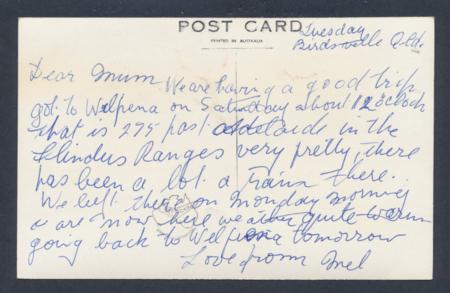 POST CARD
PRINTED IN AUSTRALIA
Tuesday
Birdsville Qld.
Dear Mum We are having a good trip
got to Wilpena on Saturday about 12 oclock
that is 295 past Adelaide in the
Flinders Ranges very pretty, there
has been a lot a rain there.
We left there on Monday morning
& are now here weather quite warm
going back to Wilpena tomorrow
Love from Mel